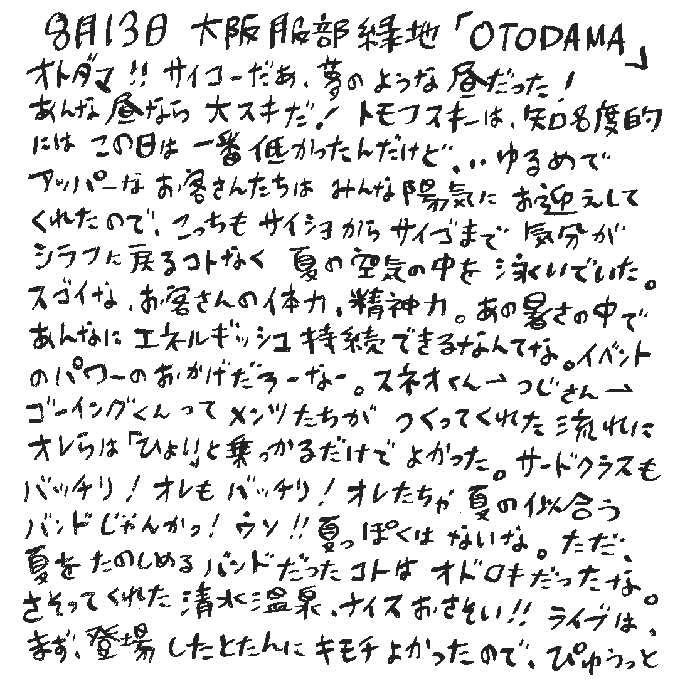 8月13日 大阪服部緑地「OTODAMA」
オトダマ!! サイコーだぁ、夢のような昼だった!
あんな昼なら大スキだ! トモフスキーは、知名度的
にはこの日は一番低かったんだけど、、、ゆるめで
アッパーなお客さんたちはみんな陽気にお迎えして
くれたので、こっちもサイショからサイゴまで気分が
シラフに戻るコトなく夏の空気の中を泳いでいた。
スゴイな、お客さんの体力、精神力。あの暑さの中で
あんなにエネルギッシュ持続できるなんてな。イベント
のパワーのおかげだろーなー。スネオくん→つじさん→
ゴーイングくんってメンツたちがつくってくれた流れに
オレらは「ひょい」と乗っかるだけでよかった。サードクラスも
バッチリ! オレもバッチリ! オレたちゃ夏の似合う
バンドじゃんかっ! ウン!! 夏っぽくはないな。ただ、
夏をたのしめるバンドだったコトはオドロキだったな。
さそってくれた清水温泉、ナイスおさそい!! ライブは、
まず、登場したとたんにキモチよかったので、ぴゅうっと